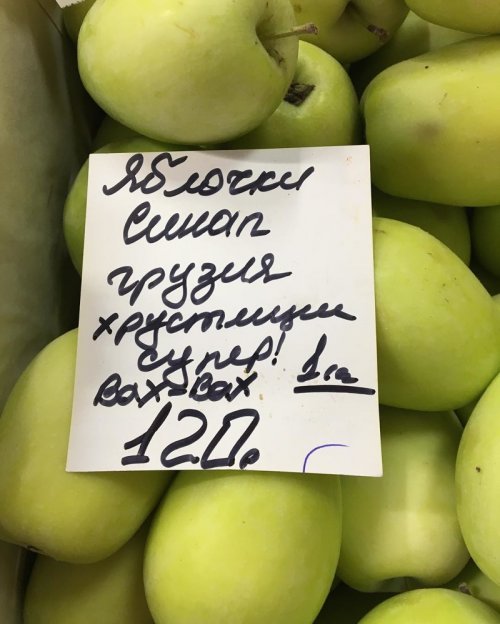 Яблочки
Синап
грузия
хрустящие
супер!
вах-вах 1кг
120р